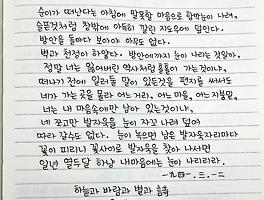 순이가 떠난다는 아침에 말못할 마음으로 함박눈이 나려,
슬픈것처럼 창밖에 아득히 깔린 지도우에 덮인다.
방안을 돌아다 보아야 아무도 없다.
벽과 천정이 하얗다. 방안에까지 눈이 나리는 것일까,
정말 너는 잃어버린 역사처럼 훌훌이 가는것이냐,
떠나기 전에 일러둘 말이 있든것을 편지를 써서도
네가 가는 곳을 몰라 어느 거리, 어느 마을, 어느 지붕밑,
너는 내 마음속에만 남아 있는것이냐,
네 쪼고만 발자욱을 눈이 자꼬 나려 덮여
따라 갈수도 없다. 눈이 녹으면 남은 발자욱자리마다
꽃이 피리니 꽃사이로 발자욱을 찾아 나서면
일년 열두달 하냥 내마음에는 눈이 나리리라.
一九四一. 三. 一二
하늘과 바람과 별과 詩